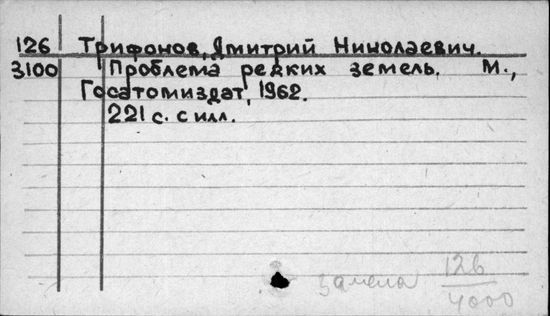 126 Трифонов, Дмитрий Николаевич.
3100 Проблема редких земель. М.,
Госатомиздат, 1962.
221 с. с илл.
замена 126
4000